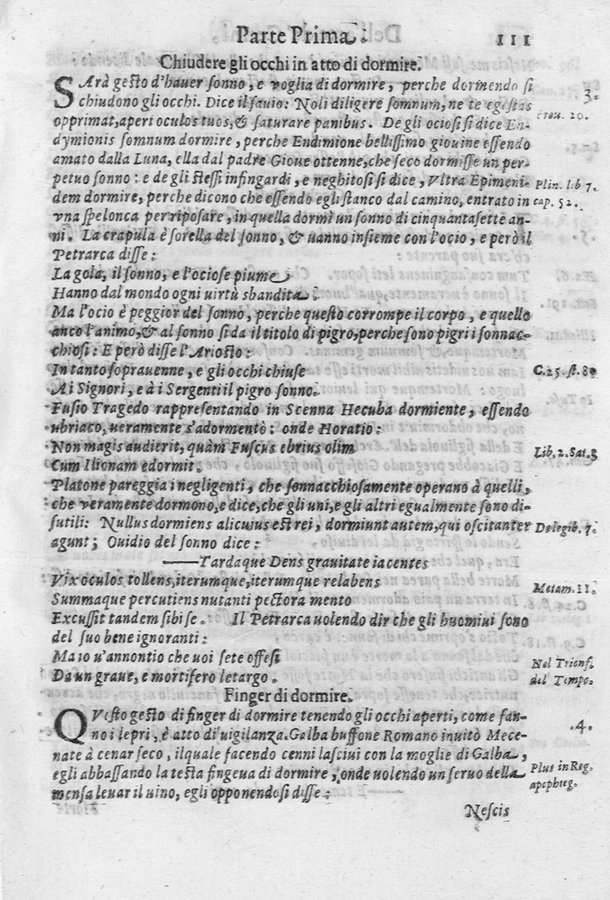 Parte Prima. 111
Chiudere gli occhi in atto di dormire.
SArà gesto d'hauer sonno, e voglia di dormire, perche dormendo si 3.
chiudono gli occhi. Dice il sauio: Noli diligere somnum, ne te egestas
opprimat, aperi oculos tuos, & saturare panibus. De gli ociosi si dice En- 20.
dymionis somnum dormire, perche Endimione bellissimo giouine essendo
amato dalla Luna, ella dal padre Gioue ottenne, che seco dormisse un per-
petuo sonno: e de gli stessi infingardi, e neghitosi si dice, Vltra Epimeni- Plin. lib 7.
dem dormire, perche dicono che essendo egli stanco dal camino, entrato in cap. 52.
vna spelonca per riposare, in quella dormì un sonno di cinquantasette an-
ni. La crapula è sorella del sonno, & uanno insieme con l'ocio, e però il
Petrarca disse:
La gola, il sonno, e l'ociose piume,
Hanno dal mondo ogni virtù sbandita.
Ma l'ocio è peggior del sonno, perche questo corrompe il corpo, e quello
anco l'animo, & al sonno si da il titolo di pigro, perche sono pigri i sonnac-
chiosi: E però disse l'Ariosto:
In tanto soprauenne, e gli occhi chiuse C. 25. st. 80
A i Signori, e à i Sergenti il pigro sonno.
Fusio Tragedo rappresentando in Scenna Hecuba dormiente, essendo
ubriaco, ueramente s'adormentò: onde Horatio:
Non magis audierit, quàm Fuscus ebrius olim Lib. 2. Sat. 3
Cum Ilionam edormit.
Platone pareggia i negligenti, che sonnacchiosamente operano à quelli,
che veramente dormono, e dice, che gli uni, e gli altri egualmente sono di-
sutili: Nullus dormiens alicuius est rei, dormiunt autem, qui oscitanter De legib. 7.
agunt; Ouidio del sonno dice:
——Tardaque Dens grauitate iacentes
Vix oculos tollens, iterumque, iterumque relabens Metam. 11.
Summaque percutiens nutanti pectora mento
Excussit tandem sibi se. Il Petrarca uolendo dir che gli huomini sono
del suo bene ignoranti:
Ma io u'annontio che uoi sete offesi Nel Trionf.
Da un graue, e mortifero letargo. del Tempo.
Finger di dormire.
QVesto gesto di finger di dormire tenendo gli occhi aperti, come fan- .4.
no i lepri, è atto di uigilanza. Galba buffone Romano inuitò Mece-
nate à cenar seco, il quale facendo cenni lasciui con la moglie di Galba,
egli abbassando la testa fingeua di dormire, onde uolendo un seruo della Plut in Reg.
mensa leuar il uino, egli opponendosi disse: apophteg.
Nescis